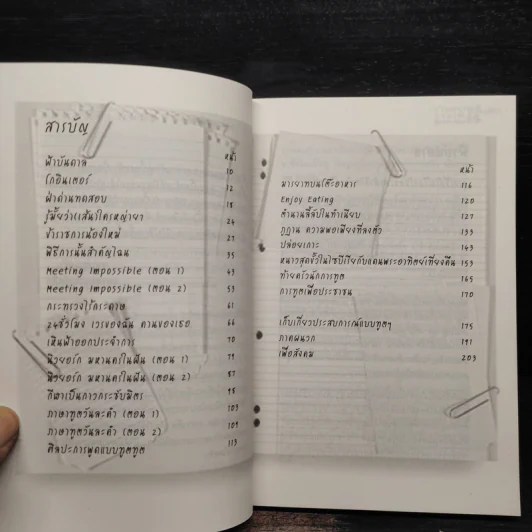 สารบัญ
หน้า
ฟ้าบันดาล 10
โกอินเตอร์ 12
ฝ่าด่านทดสอบ 18
รู้มั้ยว่า(เส้น)ใครหญ่ายา 24
ข้าราชการน้องใหม่ 27
พิธีการนั้นสำคัญไฉน 35
Meeting Impossible (ตอน 1) 43
Meeting Impossible (ตอน 2) 53
กระทรวงไร้กระดาษ 61
24ชั่วโมง เวรของฉัน ดานของเธอ 66
เหินฟ้าออกประจำการ 70
นิวยอร์ก มหานครในฝัน (ตอน 1) 79
นิวยอร์ก มหานครในฝัน (ตอน 2) 87
กีฬาเป็นกาวกระชับมิตร 98
ภาษาทูตวันละคำ (ตอน 1) 103
ภาษาทูตวันละคำ (ตอน 2) 109
ศิลปะการพูดแบบทูตทูต 113
หน้า
มารยาทบนโต๊ะอาหาร 116
Enjoy Eating 120
ตำนานลี้ลับในทำเนียบ 127
ภูฏาน ความพอเพียงที่ลงตัว 133
ปล่อยเกาะ 143
หนาวสุดขั้วในไซบีเรียกับแดนพระอาทิตย์เที่ยงคืน 153
ท้ายครัวนักการทูต 165
การทูตเพื่อประชาชน 170
เก็บเกี่ยวประสบการณ์แบบทูตๆ 175
ภาคผนวก 191
เพื่อสังคม 203